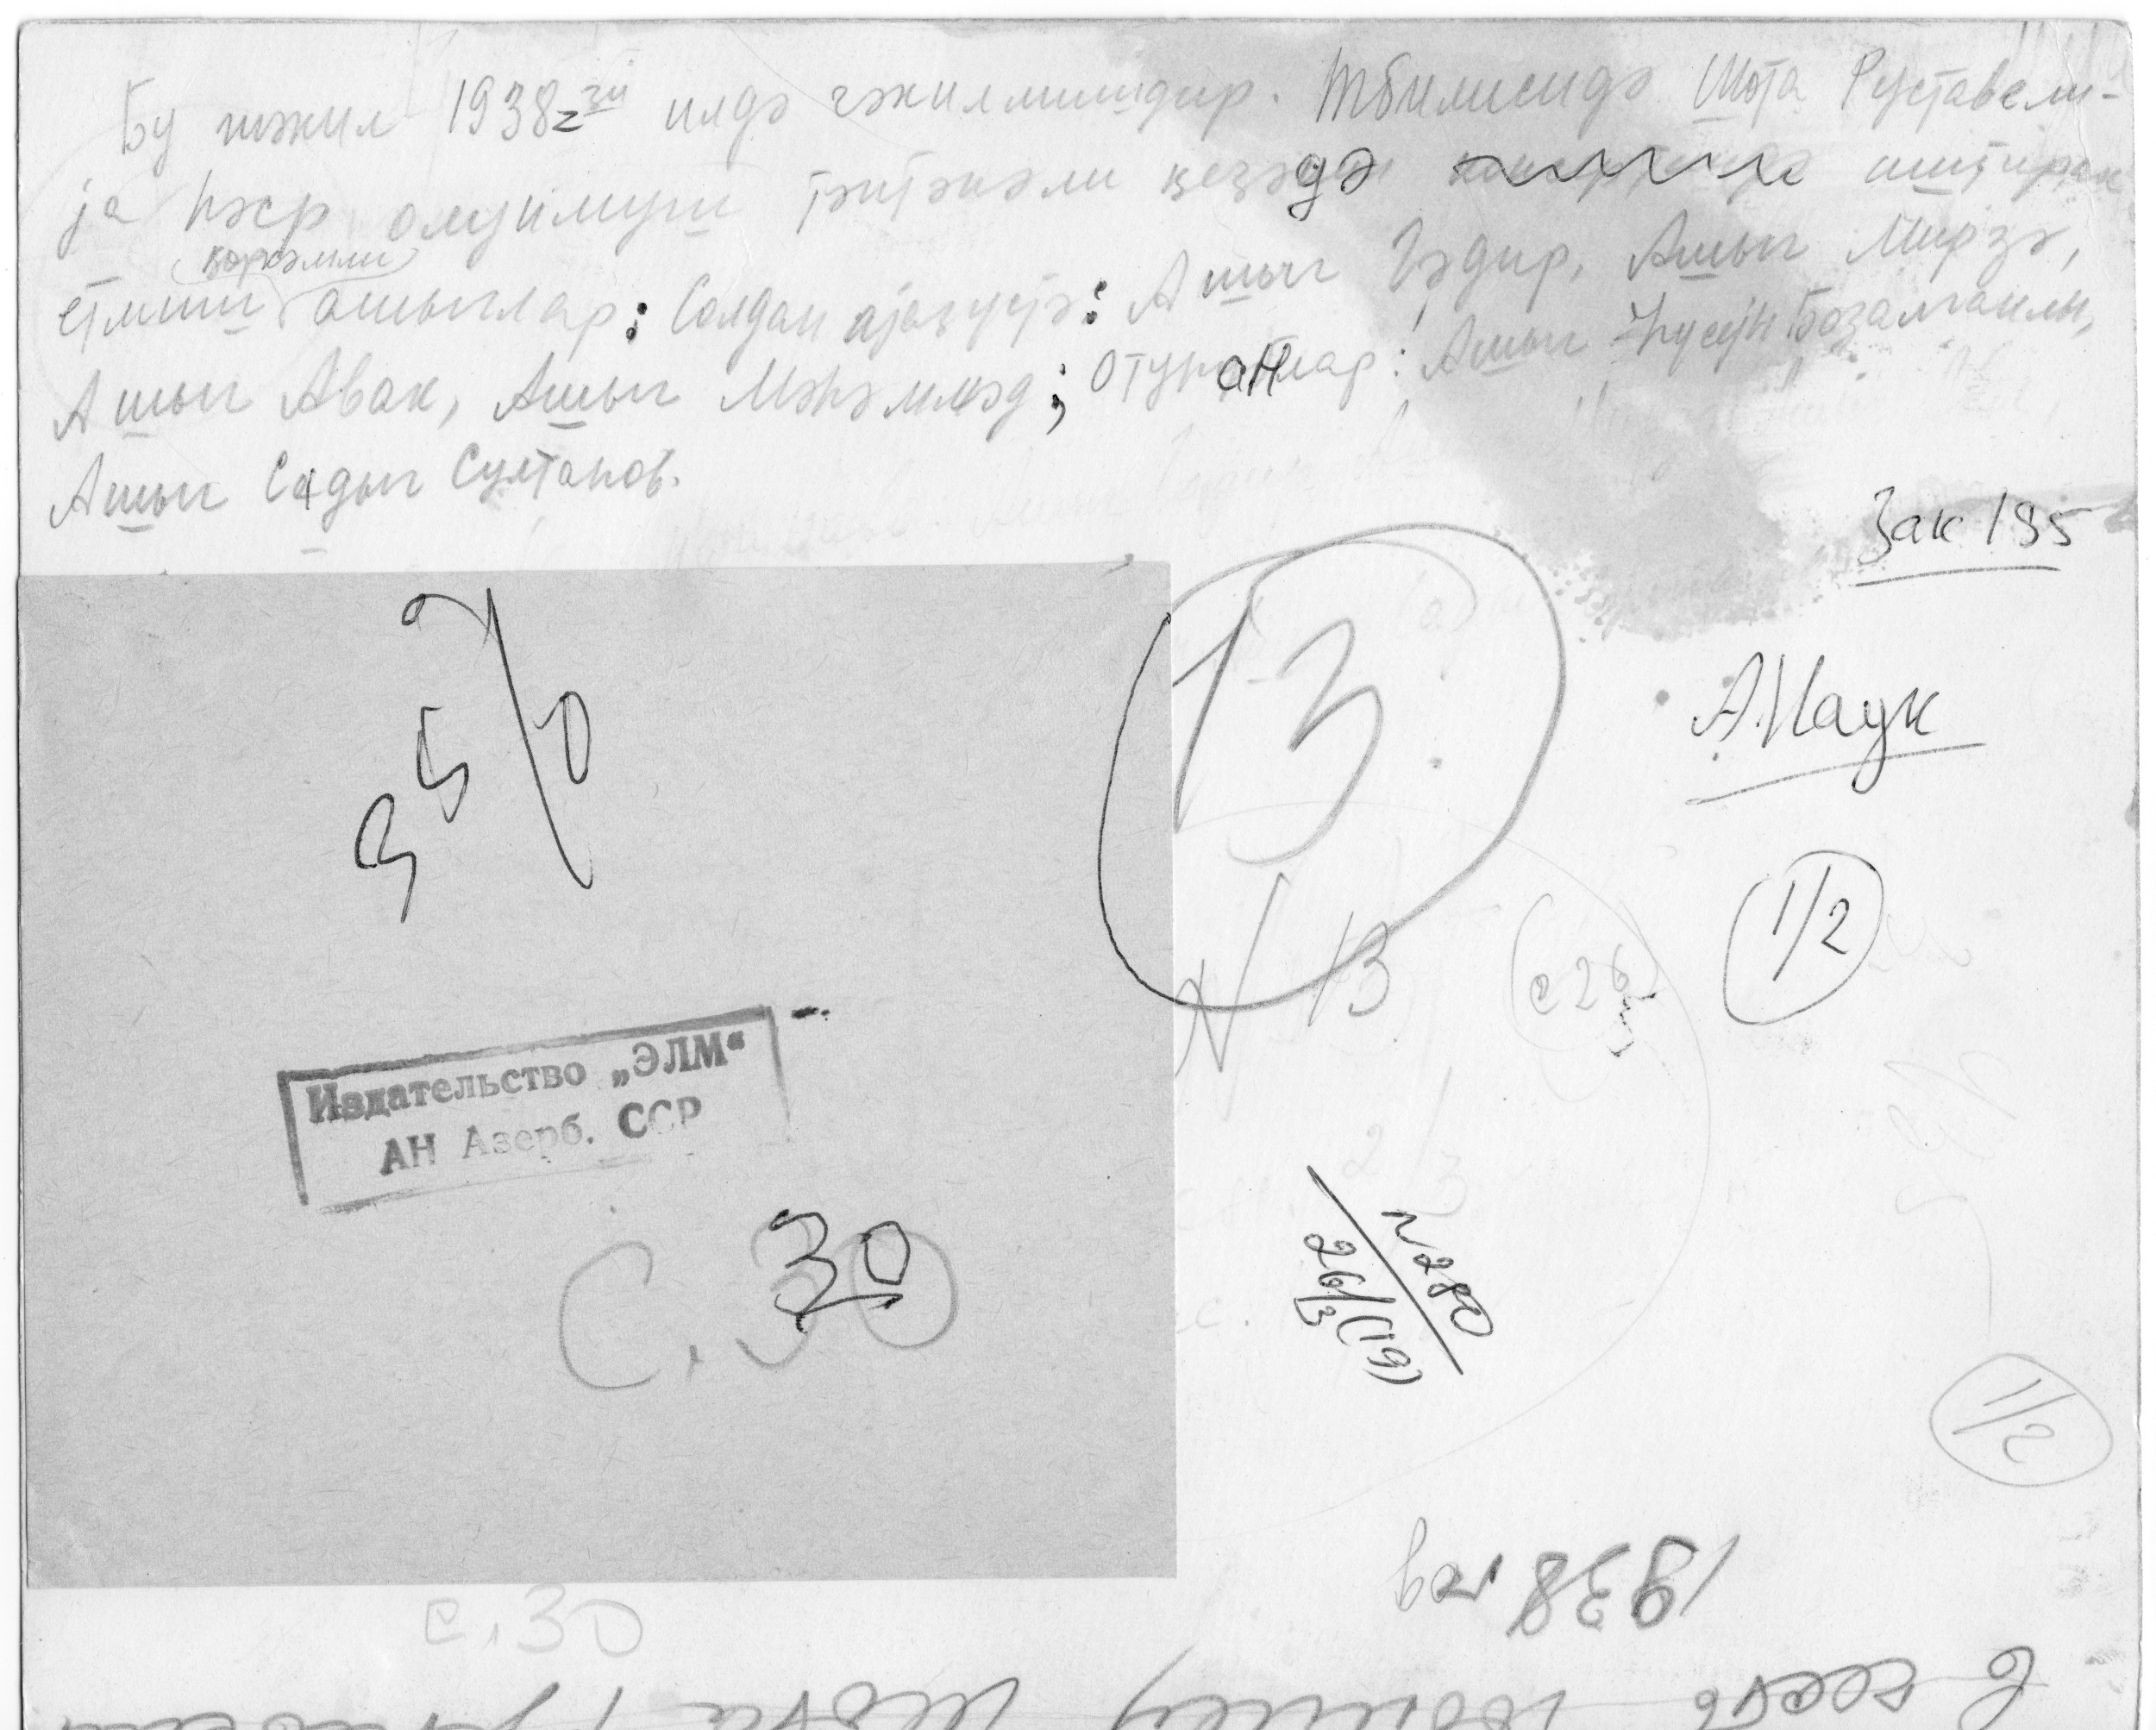 Бу шәкил 1938-зи илдә чәкилмишдир. Тбилисидә Шота Руставели-
ја һәср олунмуш тәнтәнәли кечәдә иштирак
көркәмли
етмиш ашыглар: Солдан ајагүстә: Ашыг Гәдир, Ашыг Мирзә,
Ашыг Авак, Ашыг Мәһәммәд; Отуранлар: Ашыг Һүсејн Бозалганлы,
Ашыг Садыг Султанов.
Зак 195
А.Наук
13
1/2
N 13
с 26
Издательство „ЭЛМ“
АН Азерб. ССР
30
С. 30
2/3
N 280
26/3 (19)
1/2
1938 год
с. 30
В честь Шота